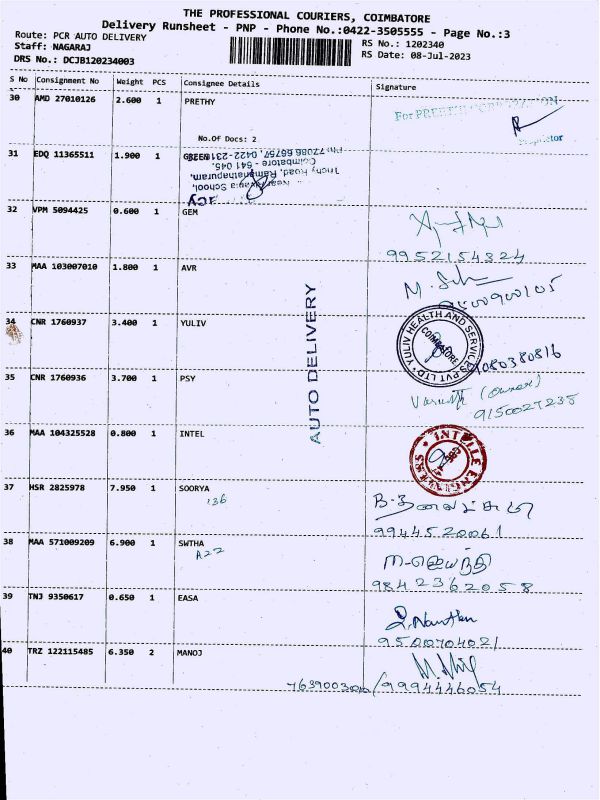 THE PROFESSIONAL COURIERS, COIMBATORE
Delivery Runsheet - PNP - Phone No.:0422-3505555 - Page No.:3
Route: PCR AUTO DELIVERY
Staff: NAGARAJ
DRS No.: DCJB120234003
RS No.: 1202340
RS Date: 08-Jul-2023
S No Consignment No Weight PCS Consignee Details Signature
30 AMD 27010126 2.600 1 PRETHY
For
Proprietor
No.Of Docs: 2
31 EDQ 11365511 1.900 1 GREEN
Trichy Road, Ramanathapuram,
Coimbatore - 641 045.
32 VPM 5094425 0.600 1 GEM
9952154324
33 MAA 103007010 1.800 1 AVR
AUTO DELIVERY
34 CNR 1760937 3.400 1 YULIV
YULIV HEALTH AND SERVICES PVT LTD
COIMBATORE
9080380816
35 CNR 1760936 3.700 1 PSY
(Owner)
9150027235
36 MAA 104325528 0.800 1 INTEL
37 HSR 2825978 7.950 1 SOORYA
136
9944520061
38 MAA 571009209 6.900 1 SWTHA
A22
9842362058
39 TNJ 9350617 0.650 1 EASA
9500704021
40 TRZ 122115485 6.350 2 MANOJ
/9994446054